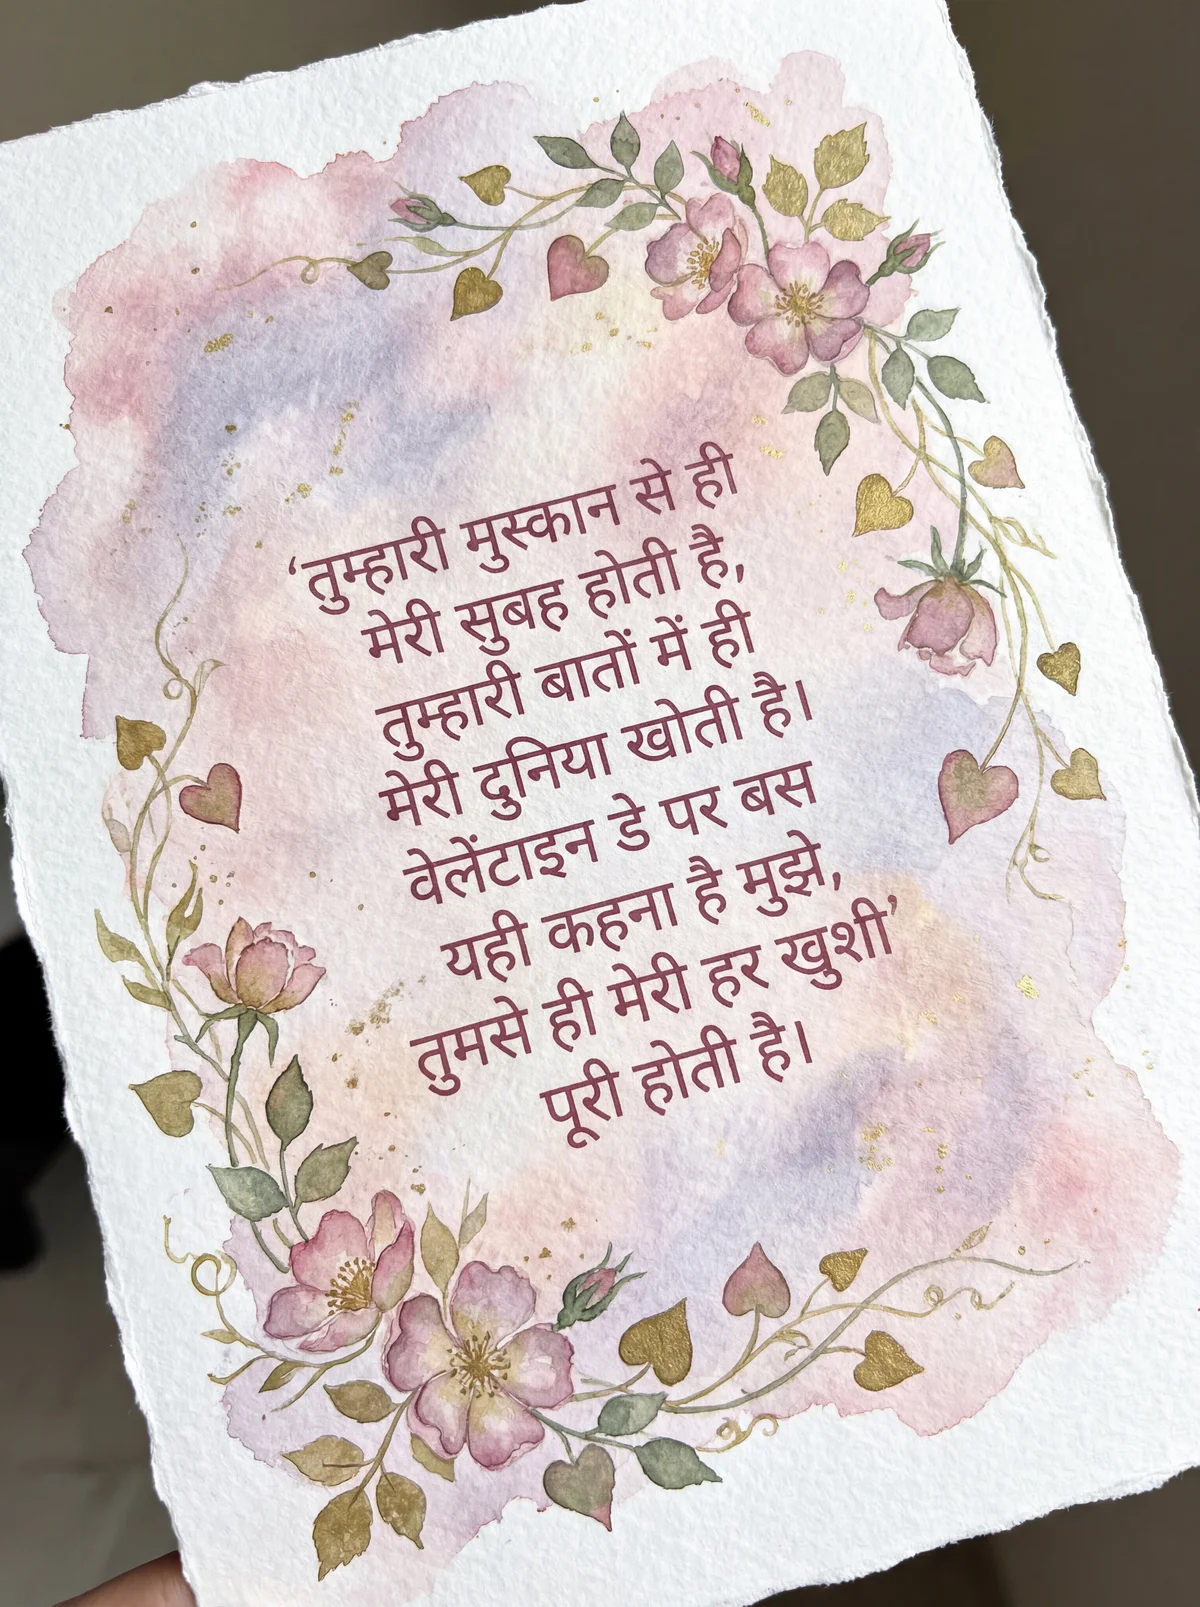 ‘तुम्हारी मुस्कान से ही
मेरी सुबह होती है,
तुम्हारी बातों में ही
मेरी दुनिया खोती है।
वेलेंटाइन डे पर बस
यही कहना है मुझे,
तुमसे ही मेरी हर खुशी’
पूरी होती है।